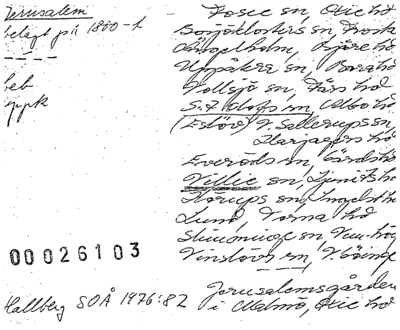 Jerusalem
belagt på 1800-t
beb
uppk
Fosie sn, Oxie hd
Bosjökloster sn, Frosta
Ängelholm, Bjäre hd
Uppåkra sn, Bara hd
Vollsjö sn, Färs hd
S:t Olofs sn, Albo hd
(Eslöv) V. Sallerups sn,
Harjagers hd
Everöds sn, Gärds hd
Villie sn, Ljunits hd
Lund, Torna hd
Vinslövs sn, V. Göinge
00026103
Hallberg SOÅ 1976:82
Jerusalemsgården
i Malmö, Oxie hd